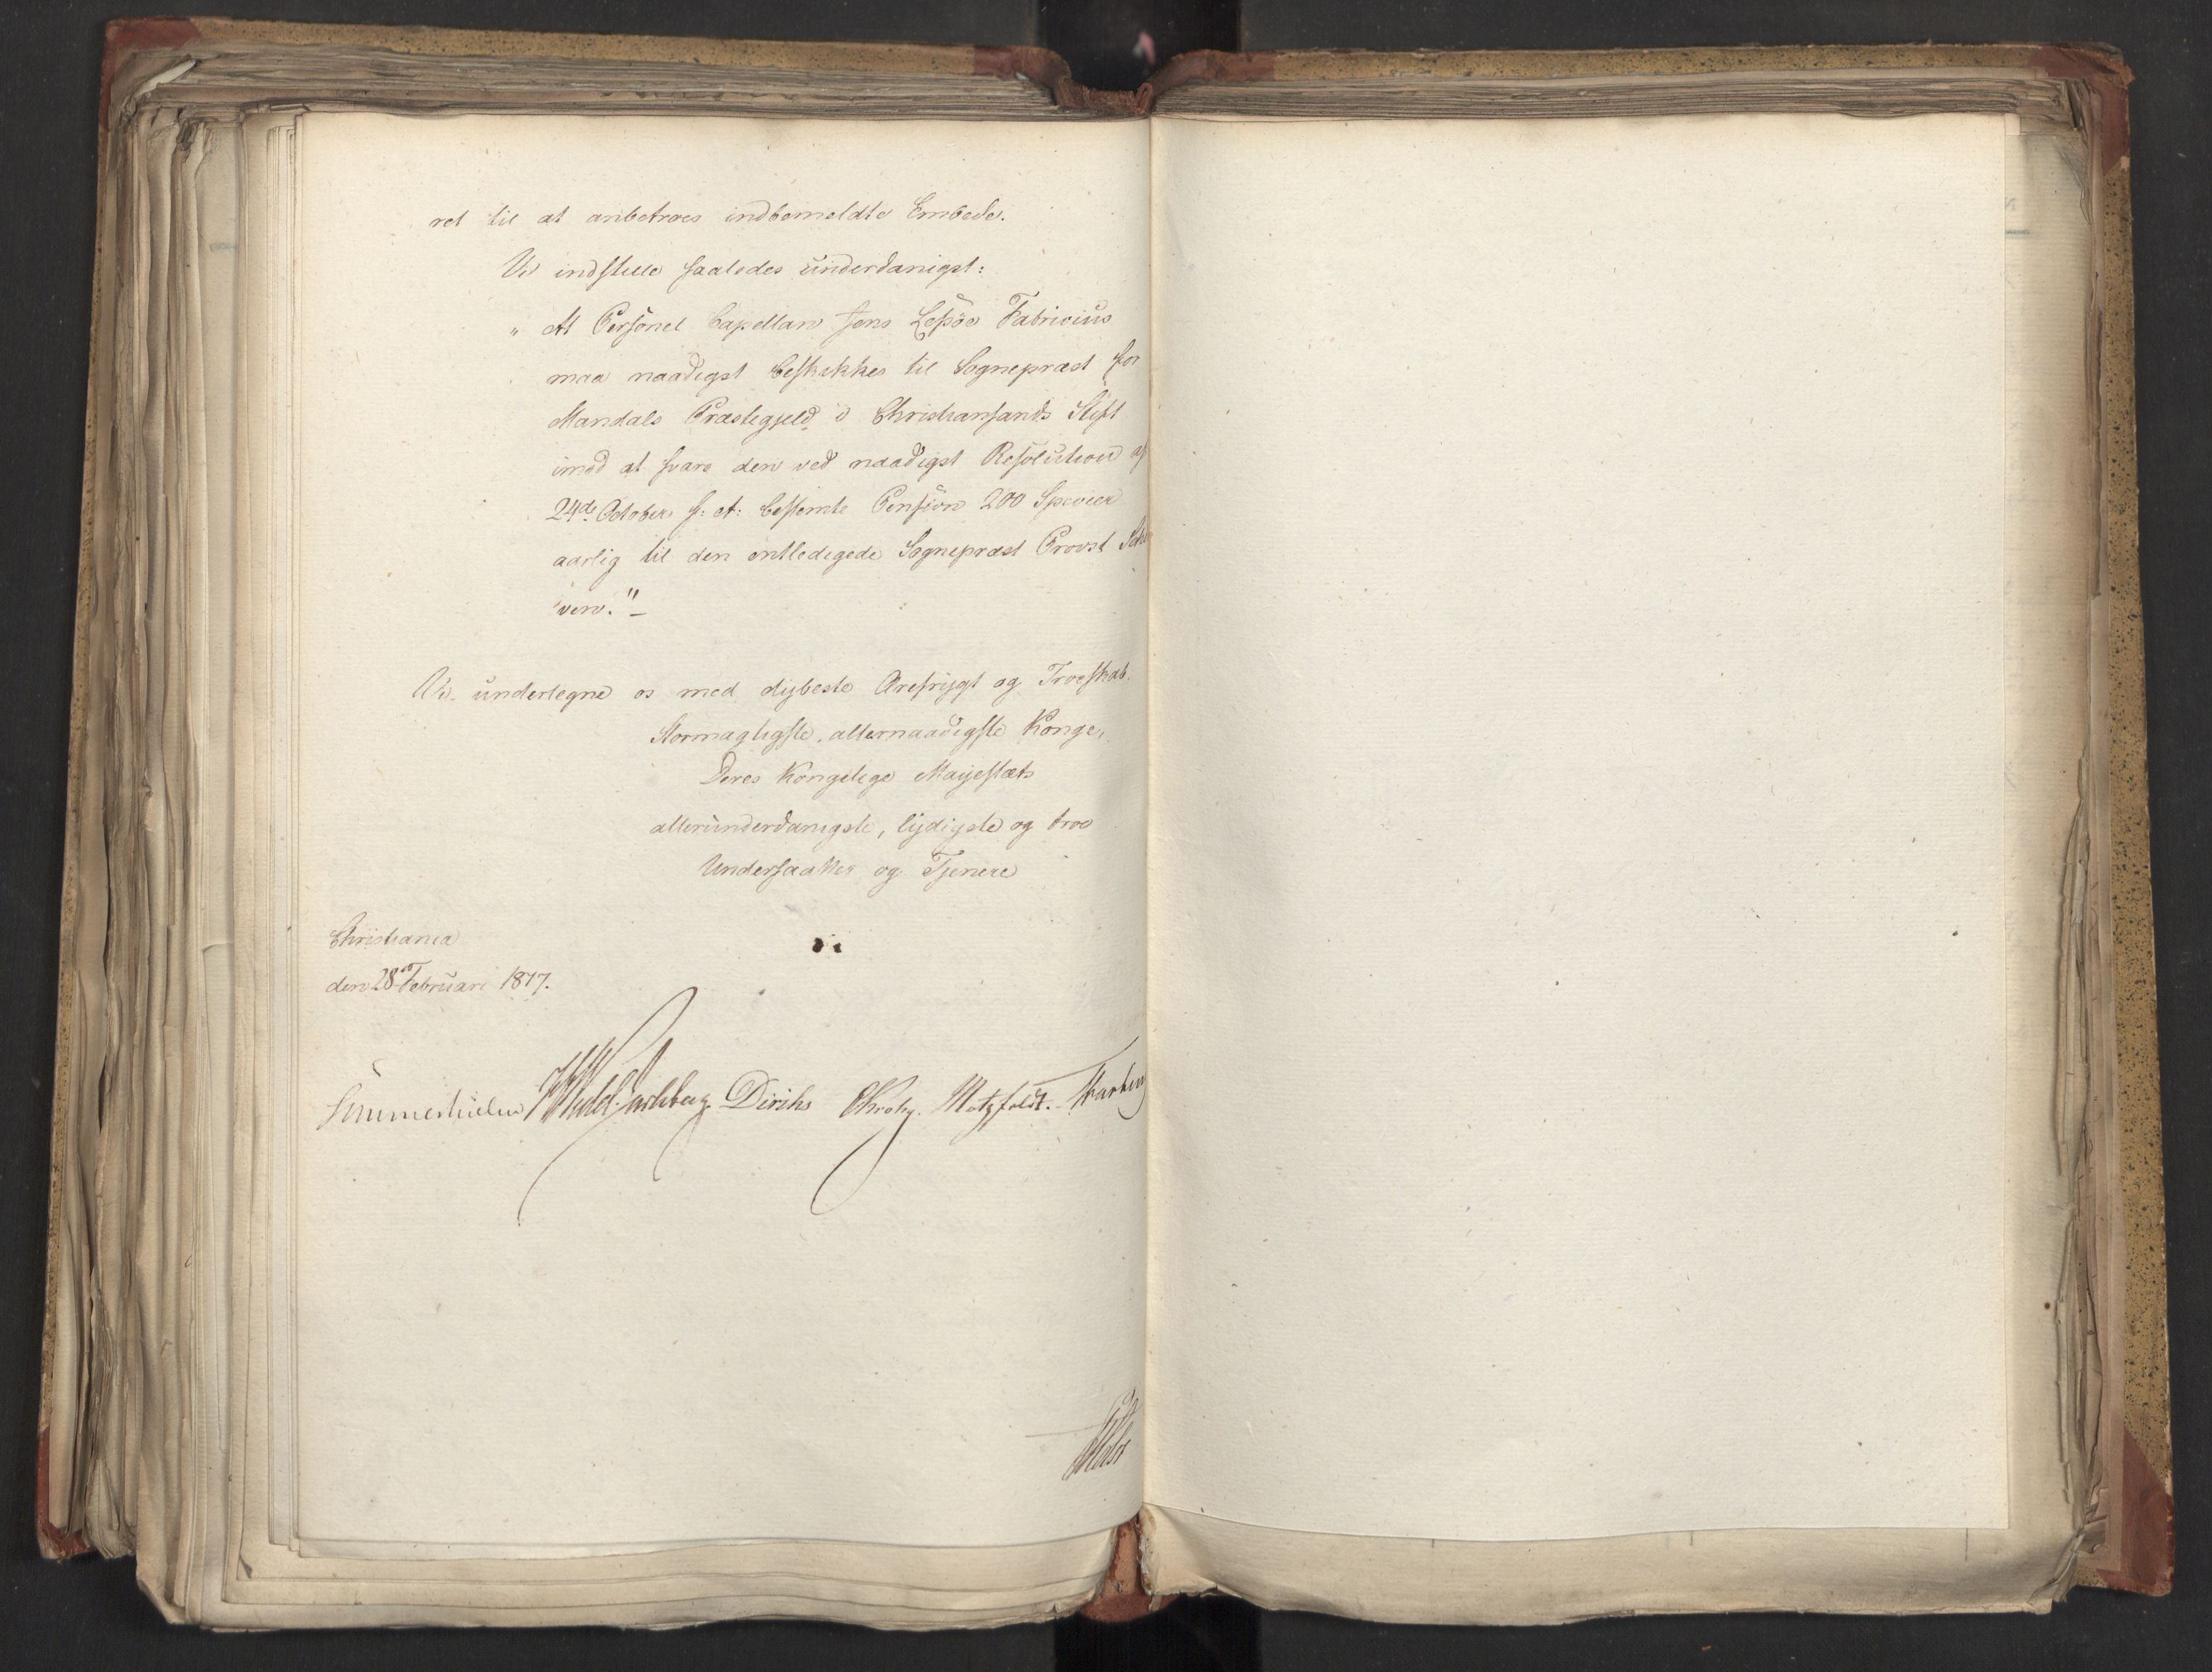 ret til at anbetroes indbemeldte Embede.
Vi indstille saaledes underdanigst:
„ At Personel Capellan Jens Lessöe Fabricius
maa naadigst beskikkes til Sognepræst for
Mandals Præstegjeld i Christiansands Stift
imod at svare den ved naadigst Resolution af
24de October f: A: bestemte Pension 200 Specier
aarlig til den entledigede Sognepræst Provst
ven."
Vi undertegne os med dybeste Ærefrygt og Troeskab.
Stormægtigste, allernaadigste Konge,
Deres Kongelige Mayestæts
allerunderdanigste, lydigste og troe
Undersaatter og Tjenere
Christiania
den 28de Februari 1817.
Sommerhielm Wedel Jarlsberg. Diriks Krohg. Motzfeldt.